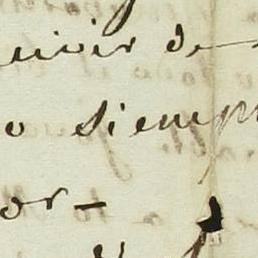 uivir de
o siemp
or -